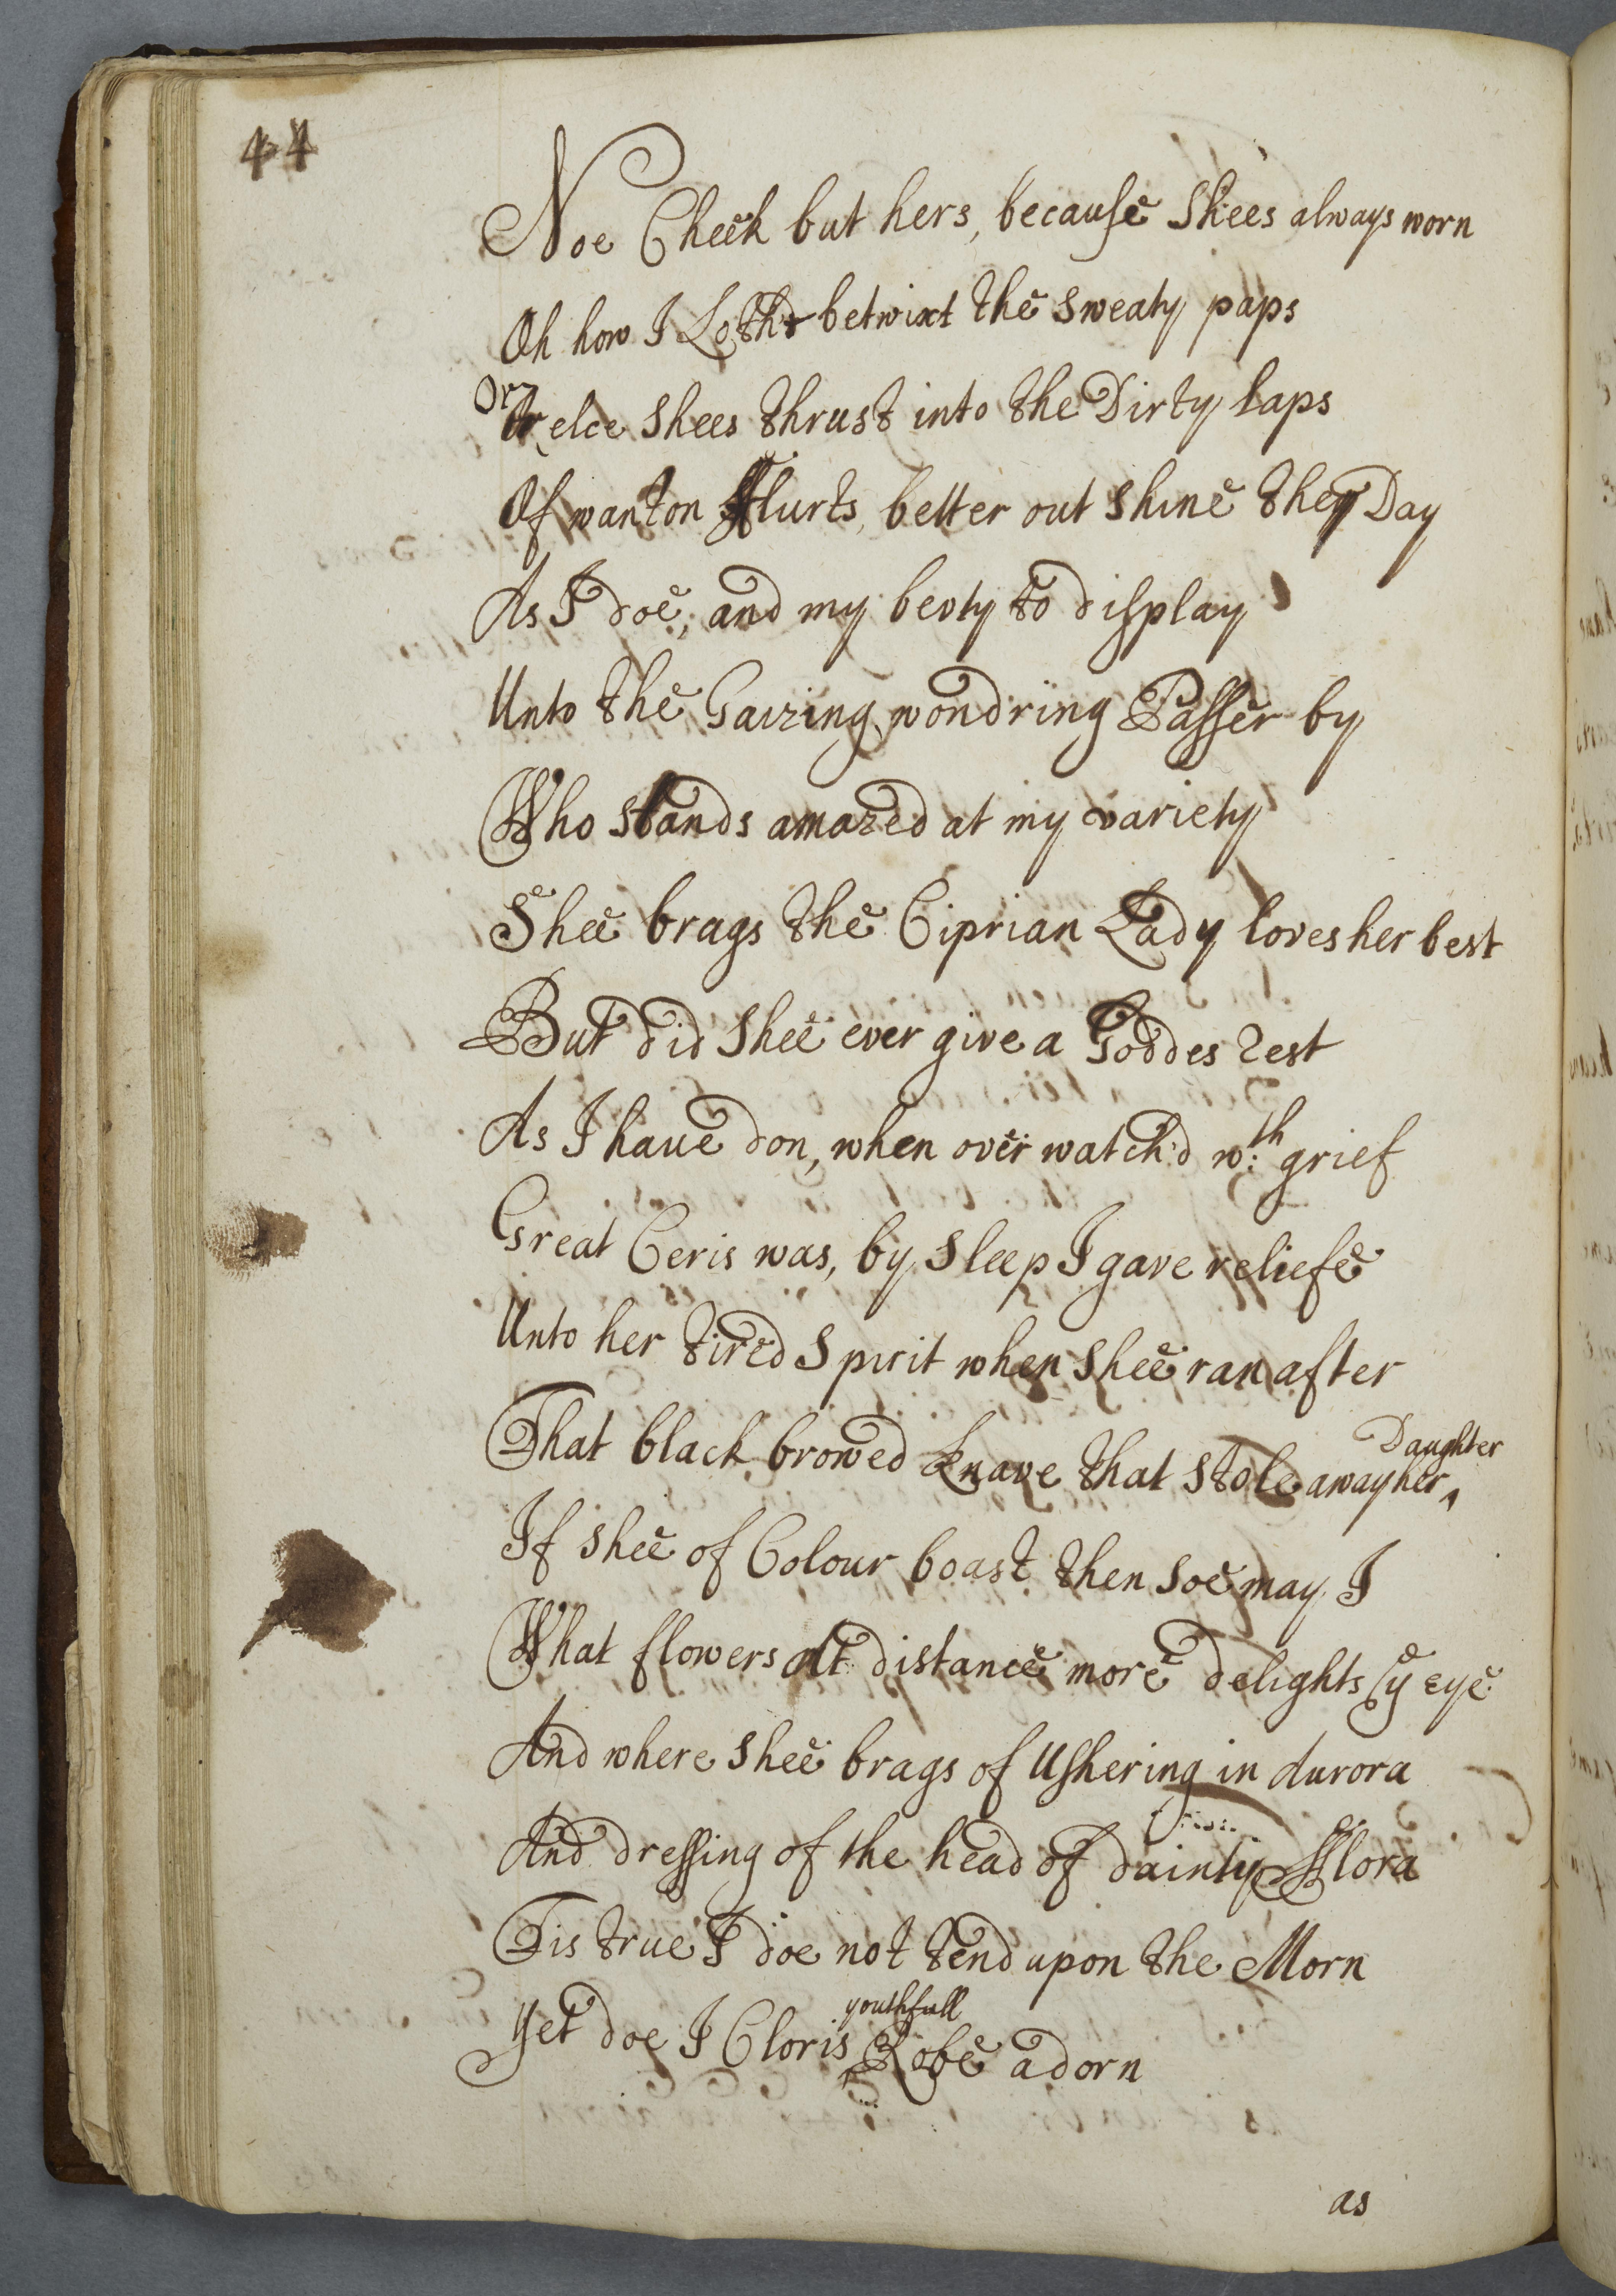 44
Noe Cheek but hers, because Shees always worn
Oh how I Loth betwixt the sweaty paps
Or elce Shees thrust into the Dirty laps
Of wanton fflurts, better out shine the Day
As I doe, and my bevty to display
Unto the Gaizing wondring Passer by
Who stands amazed at my variety
Shee brags the Ciprian Lady loves her best
But did Shee ever give a Goddes rest
As I haue don, when over watch'd wth grief
Great Ceris was, by Sleep I gave reliefe
Unto her tired Spirit when Shee ran after
That black browed knave that stole away her Daughter
If shee of Colour boast then soe may I
What flowers att distance more delights ye eye
And where Shee brags of Ushering in Aurora
And dressing of the head of dainty fflora
Tis true I doe not tend upon the Morn
Yet doe I Cloris youthfull Robe adorn
as